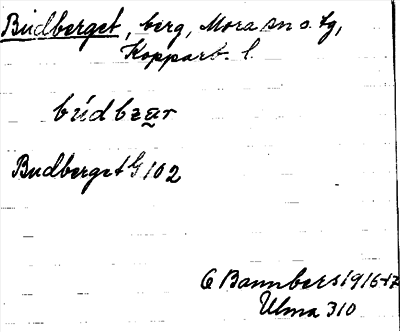 Budberget, berg, Mora sn o. tg,
Kopparb. l.
búdbzar
Budberget G 102
G Bannbers 1916-17
Ulma 310